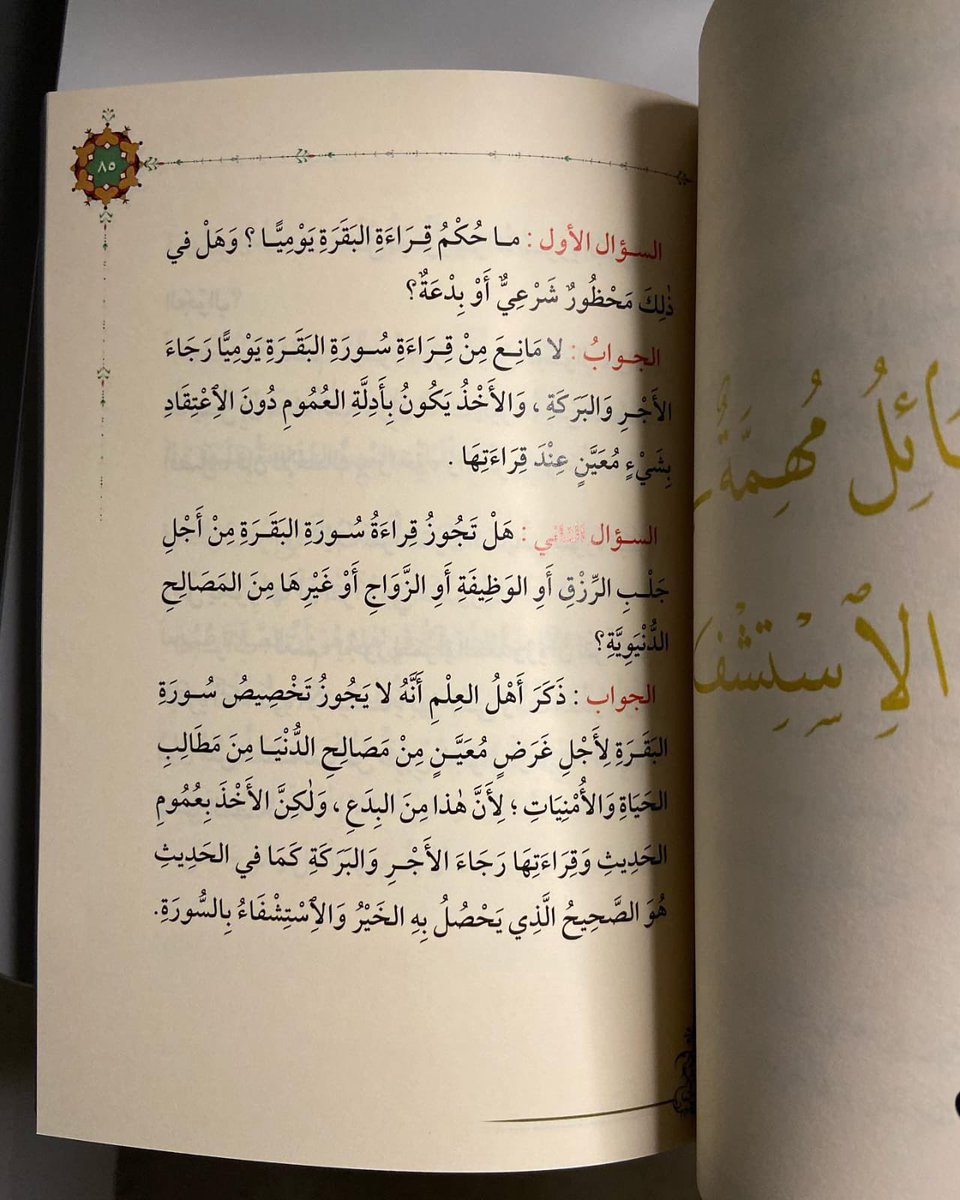 ٨٥
السؤال الأول : ما حُكْمُ قِرَاءَةِ البَقَرَةِ يَوْمِيًّا ؟ وَهَلْ في
ذٰلِكَ مَحْظُورٌ شَرْعِيٌّ أَوْ بِدْعَةٌ؟
الجوابُ : لا مَانِعَ مِنْ قِرَاءَةِ سُورَةِ البَقَرَةِ يَوْمِيًّا رَجَاءَ
الأَجْرِ وَالبَرَكَةِ ، وَالأَخْذُ يَكُونُ بِأَدِلَّةِ العُمُومِ دُونَ الِاعْتِقَادِ
بِشَيْءٍ مُعَيَّنٍ عِنْدَ قِرَاءَتِهَا .
السؤال الثاني : هَلْ تَجُوزُ قِرَاءَةُ سُورَةِ البَقَرَةِ مِنْ أَجْلِ
جَلْبِ الرِّزْقِ أَوِ الوَظِيفَةِ أَوِ الزَّوَاجِ أَوْ غَيْرِهَا مِنَ المَصَالِحِ
الدُّنْيَوِيَّةِ؟
الجواب : ذَكَرَ أَهْلُ العِلْمِ أَنَّهُ لا يَجُوزُ تَخْصِيصُ سُورَةِ
البَقَرَةِ لِأَجْلِ غَرَضٍ مُعَيَّنٍ مِنْ مَصَالِحِ الدُّنْيَا مِنَ مَطَالِبِ
الحَيَاةِ وَالأُمْنِيَاتِ ؛ لِأَنَّ هٰذا مِنَ البِدَعِ ، وَلٰكِنَّ الأَخْذَ بِعُمُومِ
الحَدِيثِ وَقِرَاءَتِهَا رَجَاءَ الأَجْرِ وَالبَرَكَةِ كَمَا في الحَدِيثِ
هُوَ الصَّحِيحُ الَّذِي يَحْصُلُ بِهِ الخَيْرُ وَالِاسْتِشْفَاءُ بِالسُّورَةِ.
مُهِمَّةٌ